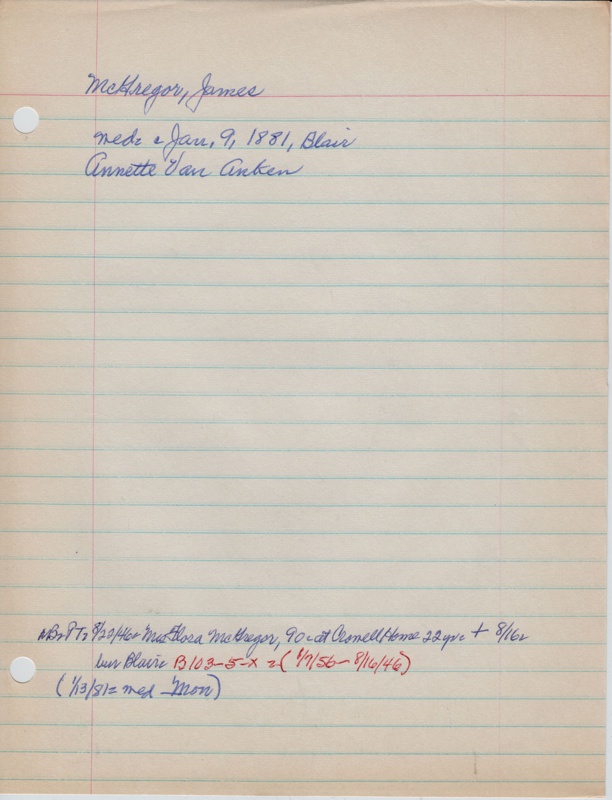 McGregor, James
med: c Jan. 9, 1881, Blair
Annette Van Anken
8/22/46 Mrs Flora McGregor, 90 at Crowell Home 22 yrs + 8/16
bur Blair: B103-5-x = (1/7/56 - 8/16/46)
(1/13/81 = med Mon)